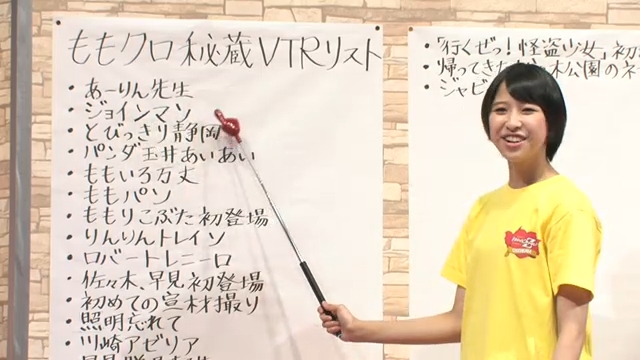 ももクロ秘蔵VTRリスト
・あーりん先生
・ジョインマン
・とびっきり静岡
・パンダ玉井あいあい
・ももいろ万丈
・ももパソ
・ももりこぶた初登場
・りんりんトレイン
・ロバートレニーロ
・佐々木、早見初登場
・初めての宣材撮り
・照明忘れて
・川崎アゼリア
・「行くぜっ!怪盗少女」初
・帰ってきた
木公園のネ
・ジャビ